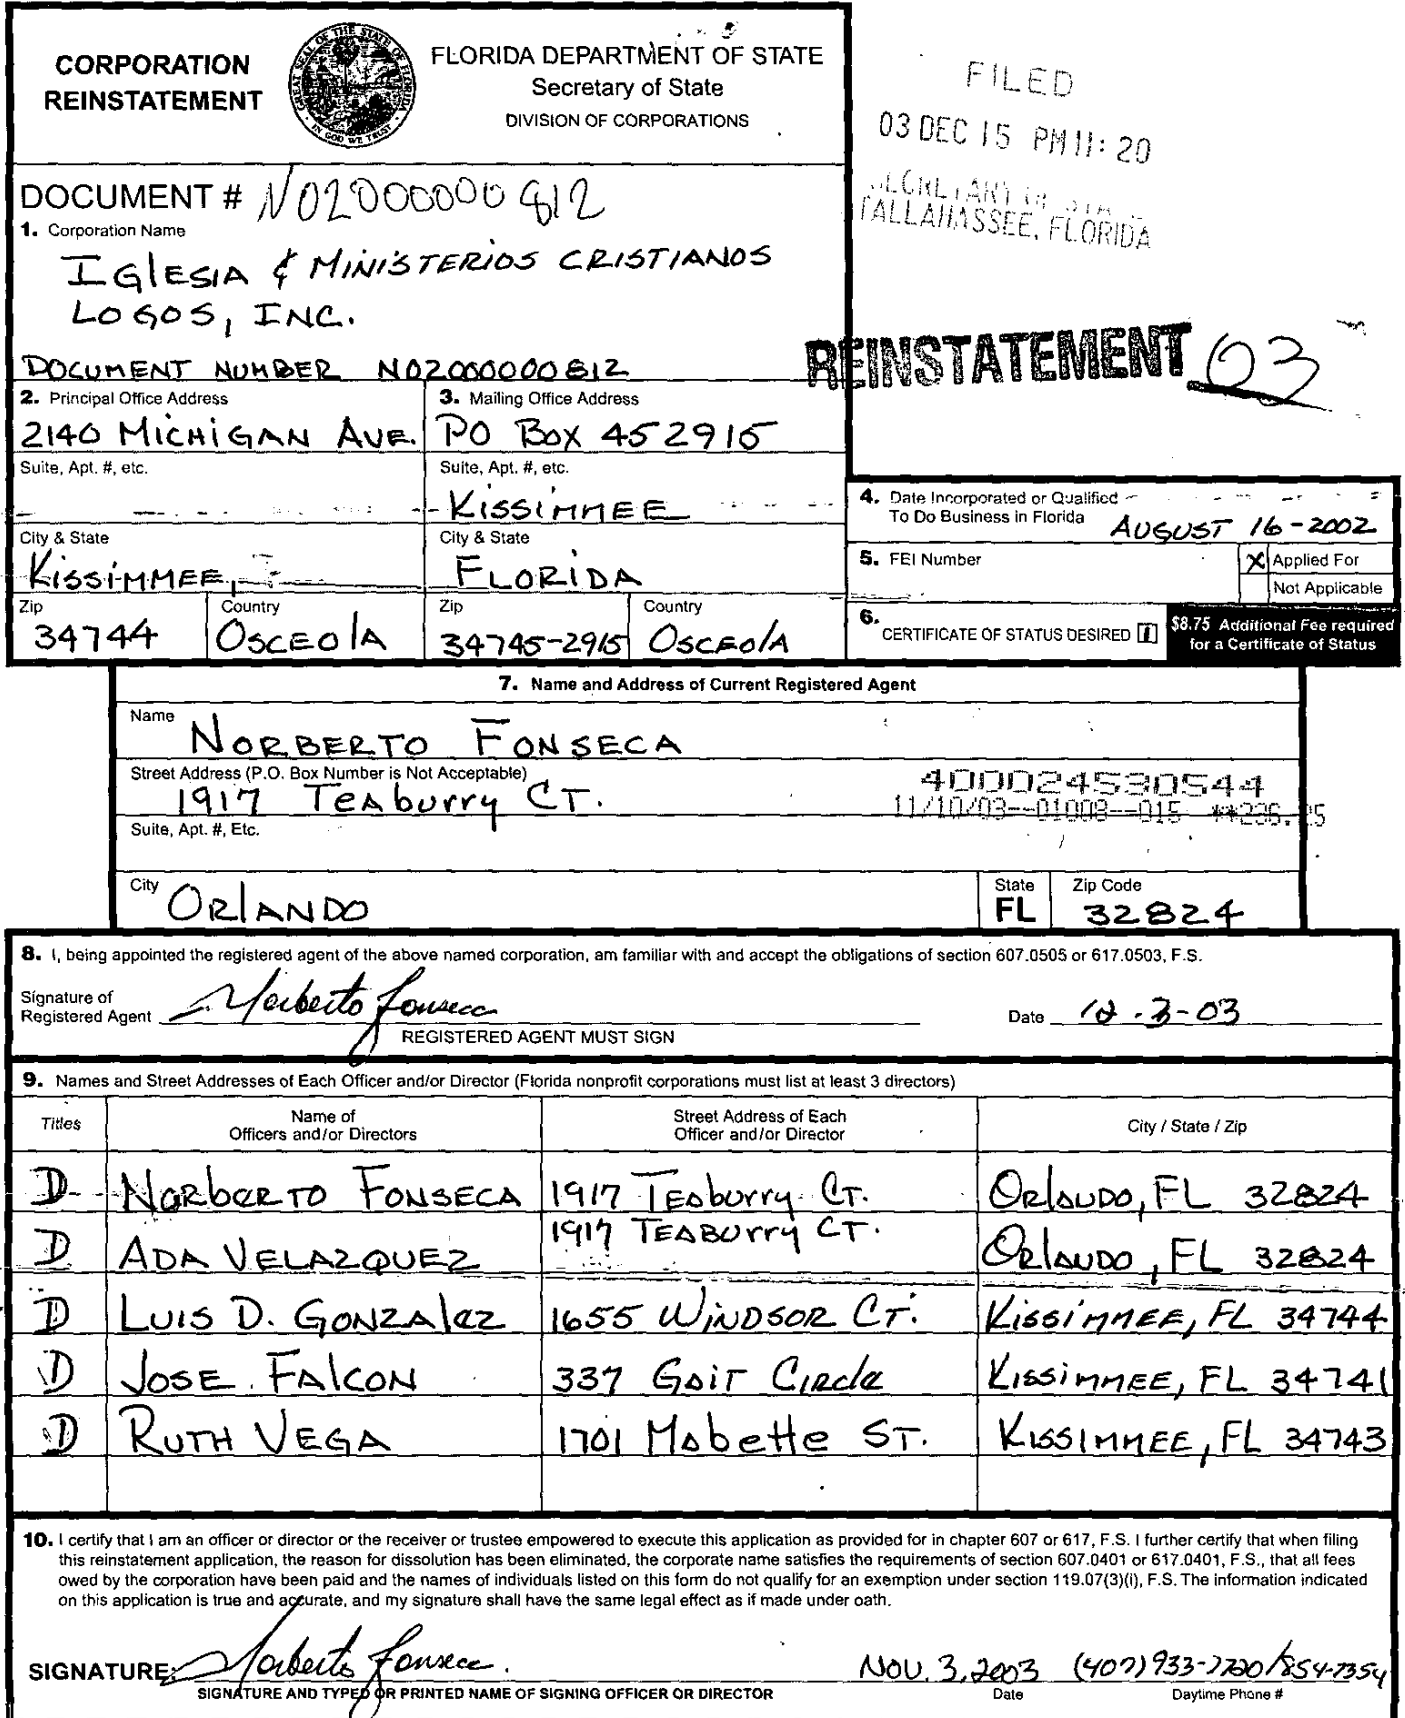 CORPORATION
REINSTATEMENT
FLORIDA DEPARTMENT OF STATE
Secretary of State
DIVISION OF CORPORATIONS
FILED
03 DEC 15 PM 11: 20
SECRETARY OF STATE
TALLAHASSEE, FLORIDA
DOCUMENT # N02000000812
1. Corporation Name
IGLESIA & MINISTERIOS CRISTIANOS
LOGOS, INC.
DOCUMENT NUMBER N02000000812
REINSTATEMENT 03
2. Principal Office Address
2140 MICHIGAN AVE.
Suite, Apt. #, etc.
City & State
KISSIMMEE,
Zip
34744
Country
OSCEOLA
3. Mailing Office Address
PO BOX 452915
Suite, Apt. #, etc.
KISSIMMEE
City & State
FLORIDA
Zip
34745-2915
Country
OSCEOLA
4. Date Incorporated or Qualified
To Do Business in Florida AUGUST 16-2002
5. FEI Number
X Applied For
Not Applicable
6. CERTIFICATE OF STATUS DESIRED
$8.75 Additional Fee required
for a Certificate of Status
7. Name and Address of Current Registered Agent
Name
NORBERTO FONSECA
Street Address (P.O. Box Number is Not Acceptable)
1917 Teaburry CT.
400024530544
11/10/03--01008--015 **236.25
Suite, Apt. #, Etc.
City ORLANDO
State
FL
Zip Code
32824
8. I, being appointed the registered agent of the above named corporation, am familiar with and accept the obligations of section 607.0505 or 617.0503, F.S.
Signature of
Registered Agent Norberto Fonseca
REGISTERED AGENT MUST SIGN
Date 12-3-03
9. Names and Street Addresses of Each Officer and/or Director (Florida nonprofit corporations must list at least 3 directors)
Titles
Name of
Officers and/or Directors
Street Address of Each
Officer and/or Director
City / State / Zip
D NORBERTO FONSECA 1917 Teaburry CT. ORLANDO, FL 32824
D ADA VELAZQUEZ 1917 TEABURRY CT. ORLANDO, FL 32824
D LUIS D. GONZALEZ 1655 WINDSOR CT. KISSIMMEE, FL 34744
D JOSE FALCON 337 GAIT CIRCLE KISSIMMEE, FL 34741
D RUTH VEGA 1701 Mabette ST. KISSIMMEE, FL 34743
10. I certify that I am an officer or director or the receiver or trustee empowered to execute this application as provided for in chapter 607 or 617, F.S. I further certify that when filing
this reinstatement application, the reason for dissolution has been eliminated, the corporate name satisfies the requirements of section 607.0401 or 617.0401, F.S., that all fees
owed by the corporation have been paid and the names of individuals listed on this form do not qualify for an exemption under section 119.07(3)(i), F.S. The information indicated
on this application is true and accurate, and my signature shall have the same legal effect as if made under oath.
SIGNATURE: Norberto Fonseca. NOV. 3, 2003 (407) 933-7720/854-7354
SIGNATURE AND TYPED OR PRINTED NAME OF SIGNING OFFICER OR DIRECTOR
Date
Daytime Phone #